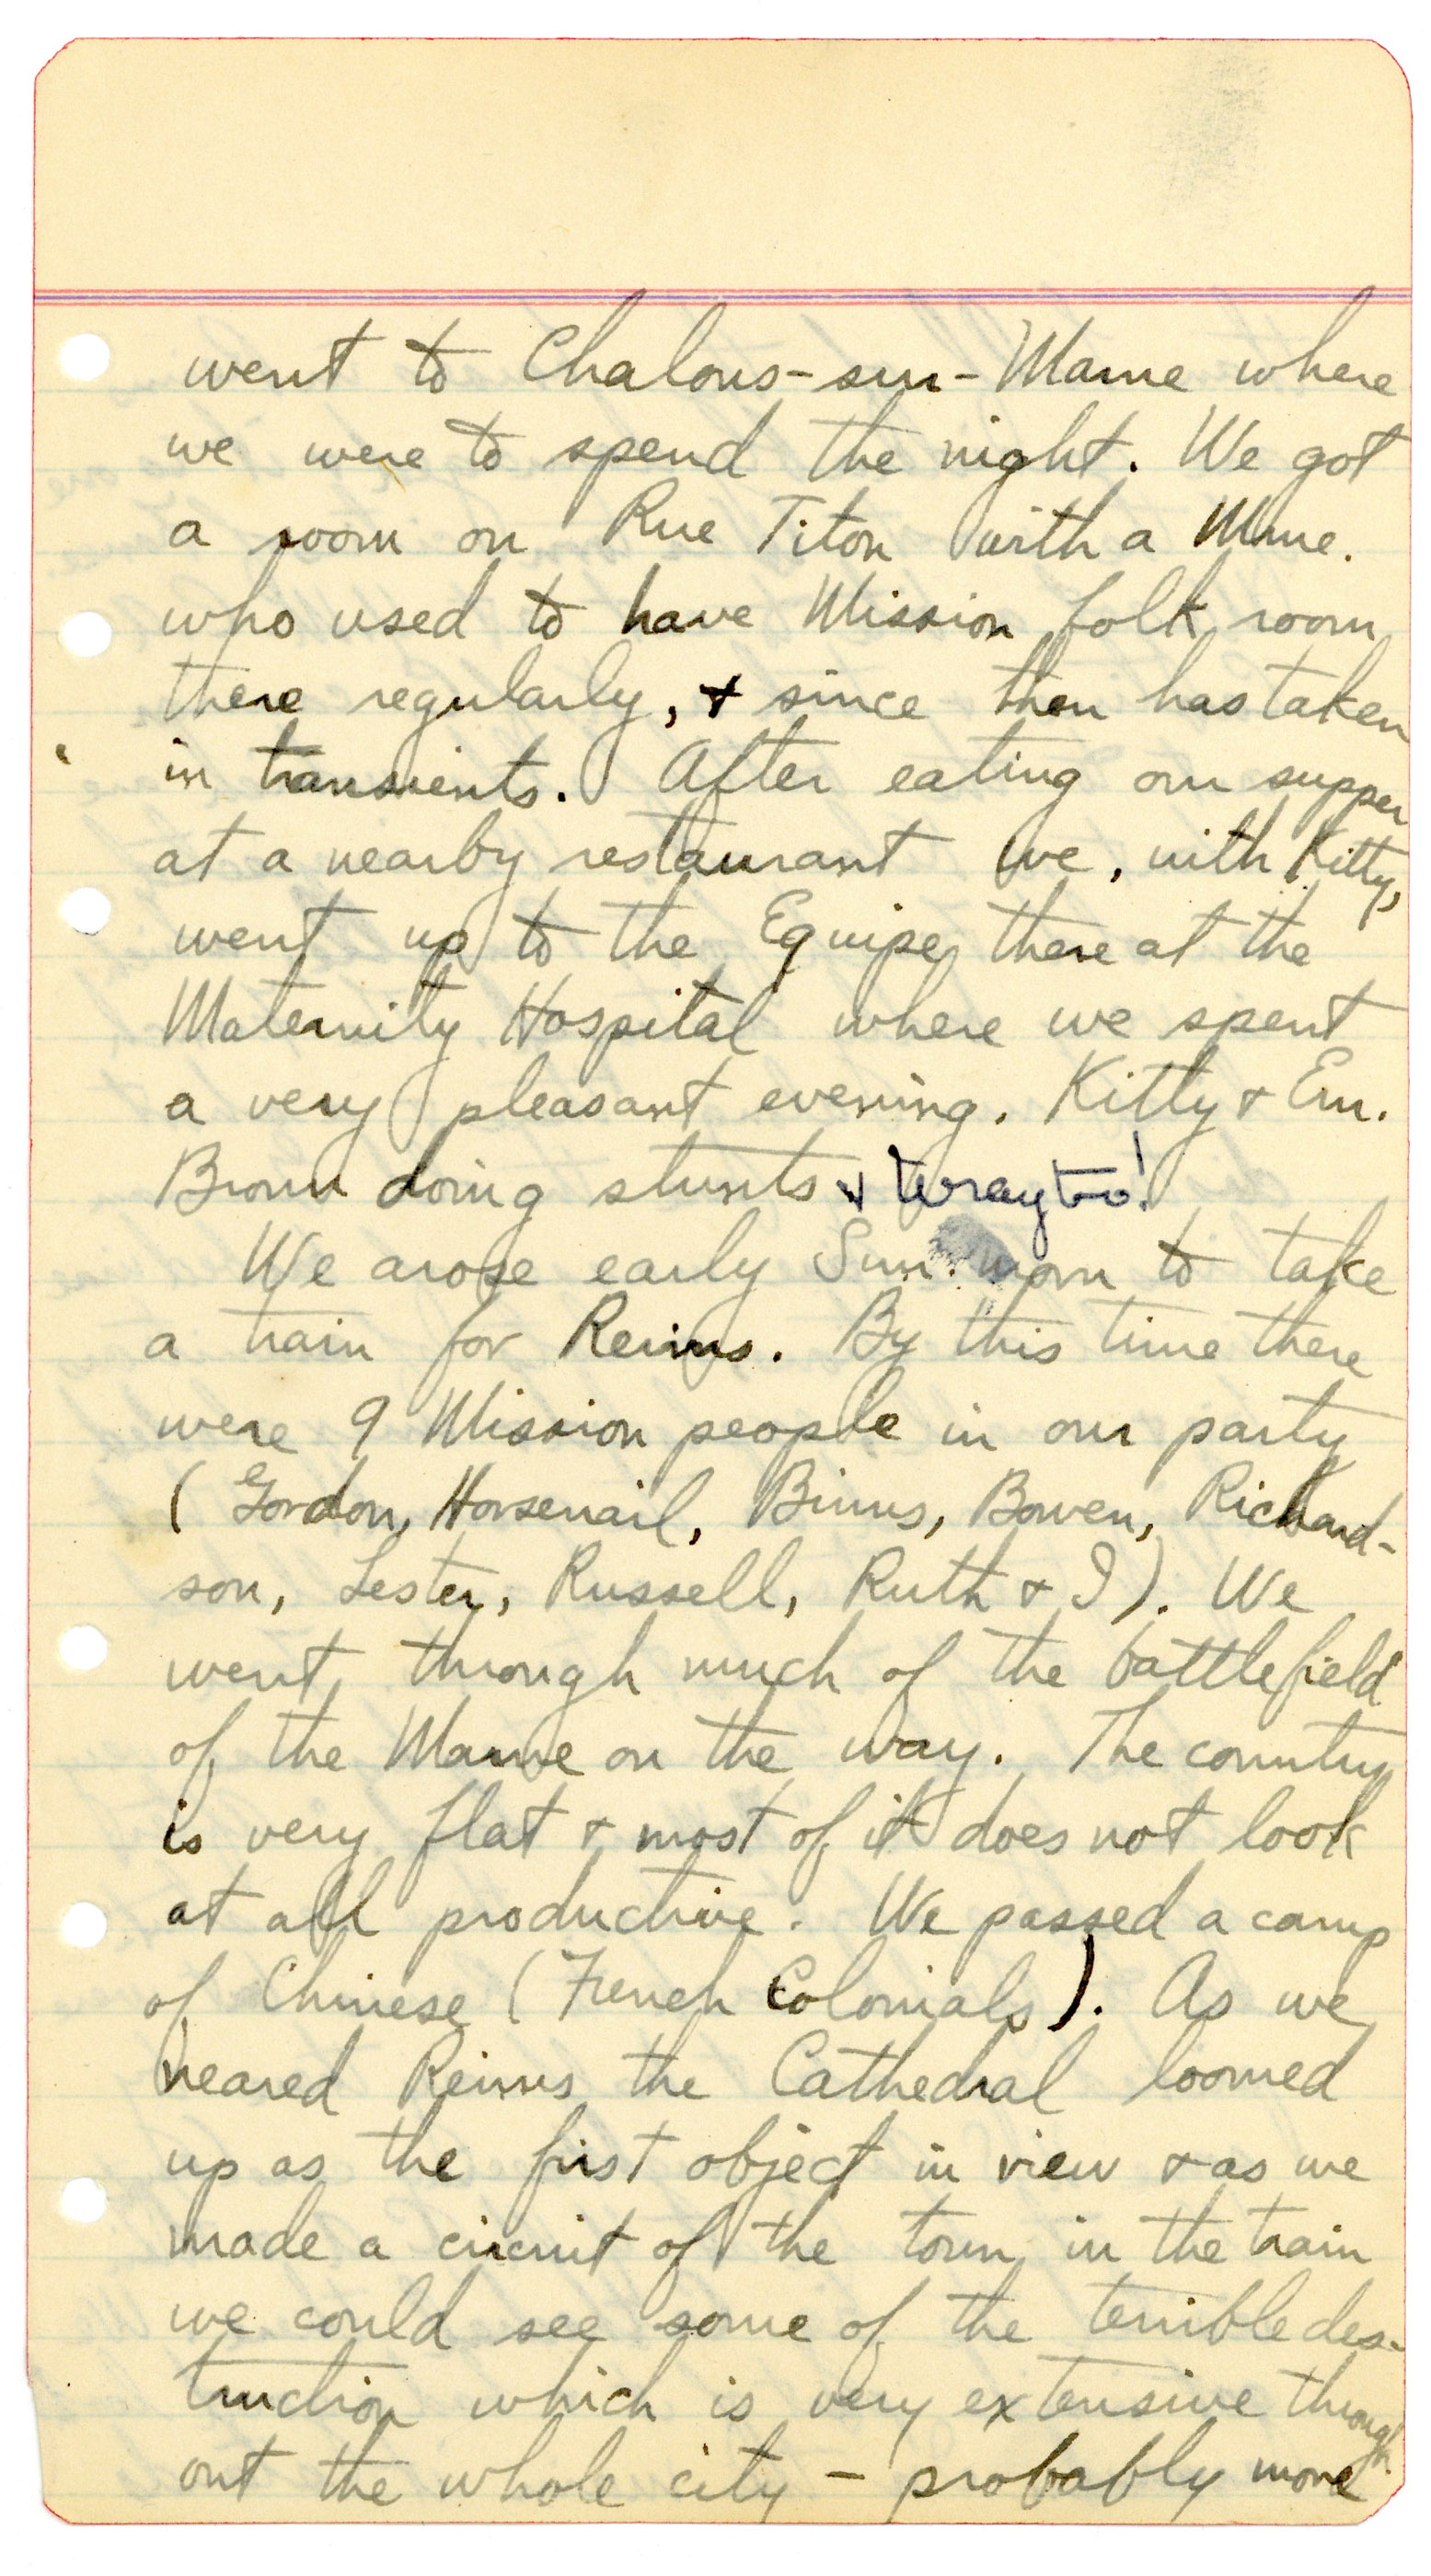 went to Chalons-sur-Marne where
we were to spend the night. We got
a room on Rue Titon with a Mme.
who used to have Mission folk room
there regularly, & since then has taken
in transients. After eating our supper
at a nearby restaurant we, with Kitty,
went up to the Equipe there at the
Maternity Hospital where we spent
a very pleasant evening. Kitty & Em.
Brown doing stunts & Wray too!
We arose early Sun. morn to take
a train for Reims. By this time there
were 9 Mission people in our party
(Gordon, Horsenail, Binns, Bowen, Richard-
son, Lester, Russell, Ruth & I). We
went through much of the battlefield
of the Marne on the way. The country
is very flat & most of it does not look
at all productive. We passed a camp
of Chinese (French Colonials). As we
neared Reims the Cathedral loomed
up as the first object in view & as we
made a circuit of the town in the train
we could see some of the terrible des-
truction which is very extensive through
out the whole city - probably more